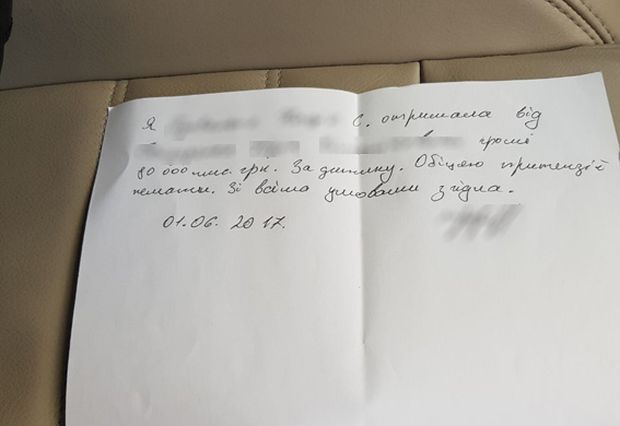 Я Є. отримала від
гроші
80 000 тис. грн. За дитину. Обіцяю притензій
немати. Зі всіма умовами згідна.
01.06.2017.